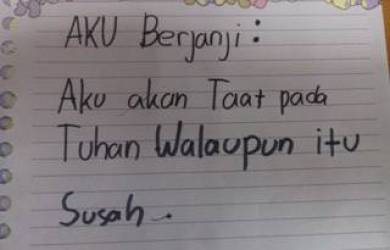 AKU Berjanji :
Aku akan Taat pada
Tuhan Walaupun itu
Susah.